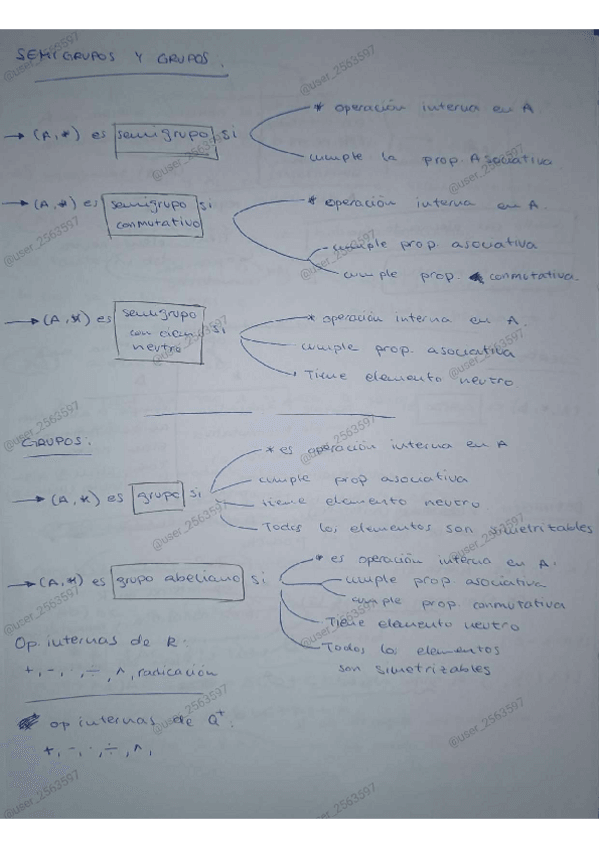 SEMIGRUPOS Y GRUPOS.
→ (A, *) es semigrupo si
* operación interna en A
cumple la prop. Asociativa
→ (A, *) es semigrupo conmutativo si
* operación interna en A.
cumple prop asociativa
cumple prop. conmutativa.
→ (A, *) es semigrupo con elem neutro si
* operación interna en A.
cumple prop. asociativa
Tiene elemento neutro
GRUPOS:
→ (A, *) es grupo si
* es operación interna en A
cumple prop asociativa
tiene elemento neutro
Todos los elementos son simetrizables
→ (A, *) es grupo abeliano si
* es operación interna en A.
cumple prop. asociativa
cumple prop. conmutativa
Tiene elemento neutro
Todos los elementos
son simetrizables
Op. internas de R:
+, -, ·, ÷, ^, radicación
op internas de Q⁺:
+, -, ·, ÷, ^,
@user_2563597